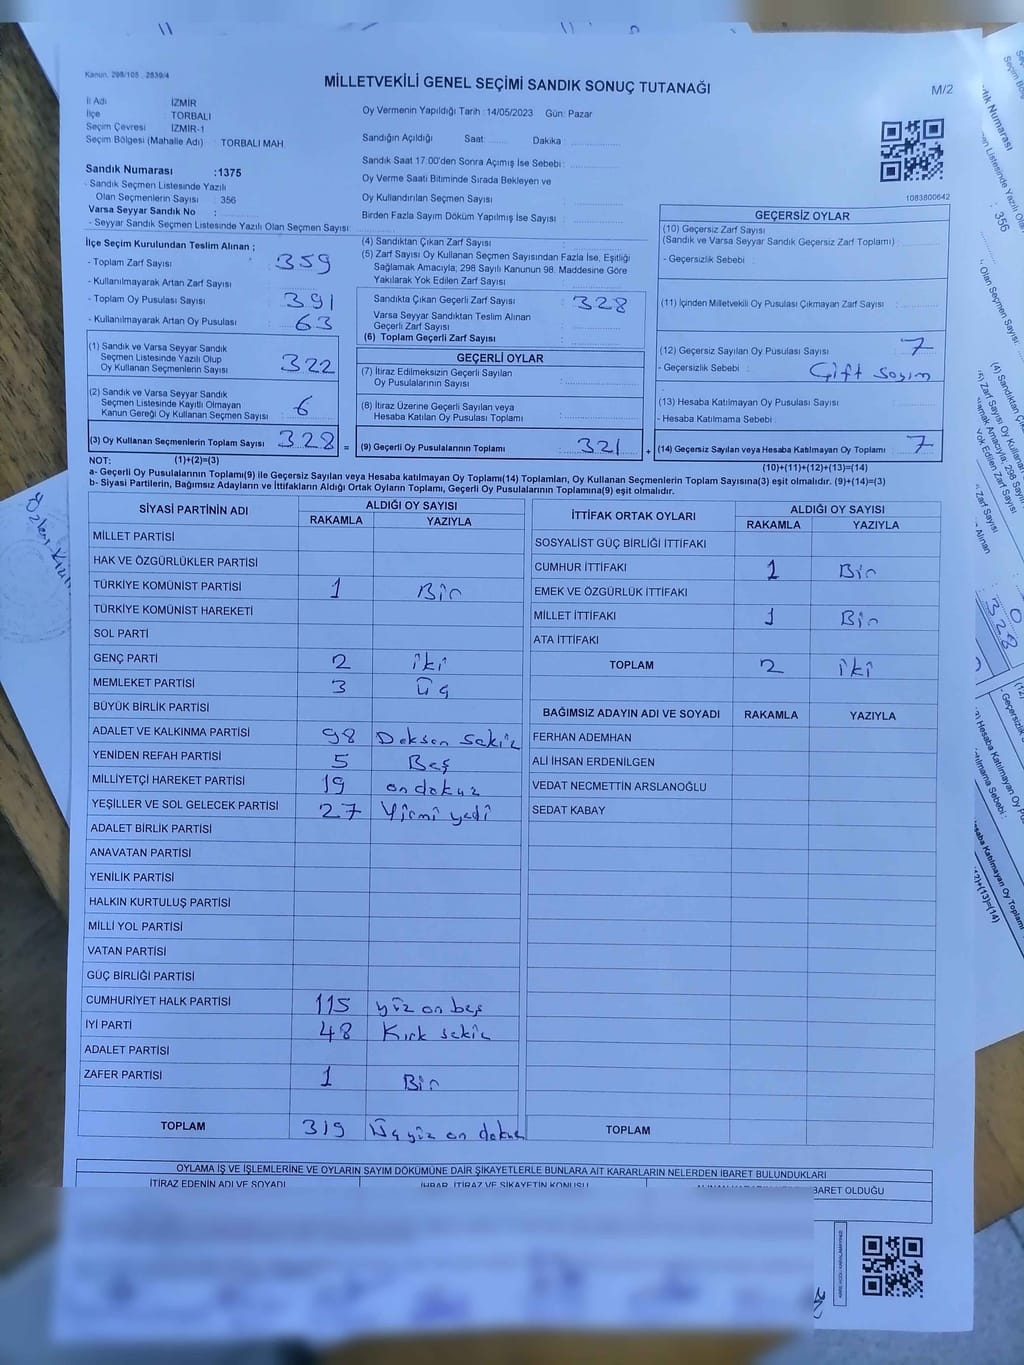 Kanun. 298/105 , 2839/4
MİLLETVEKİLİ GENEL SEÇİMİ SANDIK SONUÇ TUTANAĞI
M/2
İl Adı : İZMİR
İlçe : TORBALI
Seçim Çevresi : İZMİR-1
Seçim Bölgesi (Mahalle Adı) : TORBALI MAH
Sandık Numarası :1375
- Sandık Seçmen Listesinde Yazılı
Olan Seçmenlerin Sayısı : 356
Varsa Seyyar Sandık No :
- Seyyar Sandık Seçmen Listesinde Yazılı Olan Seçmen Sayısı :
Oy Vermenin Yapıldığı Tarih : 14/05/2023 Gün: Pazar
Sandığın Açıldığı Saat: Dakika :
Sandık Saat 17:00'den Sonra Açımış İse Sebebi :
Oy Verme Saati Bitiminde Sırada Bekleyen ve
Oy Kullandırılan Seçmen Sayısı :
Birden Fazla Sayım Döküm Yapılmış İse Sayısı :
1083800642
İlçe Seçim Kurulundan Teslim Alınan ;
- Toplam Zarf Sayısı : 359
- Kullanılmayarak Artan Zarf Sayısı :
- Toplam Oy Pusulası Sayısı : 391
- Kullanılmayarak Artan Oy Pusulası : 63
(1) Sandık ve Varsa Seyyar Sandık
Seçmen Listesinde Yazılı Olup
Oy Kullanan Seçmenlerin Sayısı : 322
(2) Sandık ve Varsa Seyyar Sandık
Seçmen Listesinde Kayıtlı Olmayan
Kanun Gereği Oy Kullanan Seçmen Sayısı : 6
(3) Oy Kullanan Seçmenlerin Toplam Sayısı : 328 =
(4) Sandıktan Çıkan Zarf Sayısı :
(5) Zarf Sayısı Oy Kullanan Seçmen Sayısından Fazla İse, Eşitliği
Sağlamak Amacıyla; 298 Sayılı Kanunun 98. Maddesine Göre
Yakılarak Yok Edilen Zarf Sayısı :
Sandıkta Çıkan Geçerli Zarf Sayısı : 328
Varsa Seyyar Sandıktan Teslim Alınan
Geçerli Zarf Sayısı :
(6) Toplam Geçerli Zarf Sayısı :
GEÇERLİ OYLAR
(7) İtiraz Edilmeksizin Geçerli Sayılan
Oy Pusulalarının Sayısı :
(8) İtiraz Üzerine Geçerli Sayılan veya
Hesaba Katılan Oy Pusulası Toplamı :
(9) Geçerli Oy Pusulalarının Toplamı : 321 +
GEÇERSİZ OYLAR
(10) Geçersiz Zarf Sayısı
(Sandık ve Varsa Seyyar Sandık Geçersiz Zarf Toplamı) :
- Geçersizlik Sebebi :
(11) İçinden Milletvekili Oy Pusulası Çıkmayan Zarf Sayısı :
(12) Geçersiz Sayılan Oy Pusulası Sayısı : 7
- Geçersizlik Sebebi : Çift Sayım
(13) Hesaba Katılmayan Oy Pusulası Sayısı :
- Hesaba Katılmama Sebebi :
(14) Geçersiz Sayılan veya Hesaba Katılmayan Oy Toplamı : 7
NOT: (1)+(2)=(3) (10)+(11)+(12)+(13)=(14)
a- Geçerli Oy Pusulalarının Toplamı(9) ile Geçersiz Sayılan veya Hesaba katılmayan Oy Toplamı(14) Toplamları, Oy Kullanan Seçmenlerin Toplam Sayısına(3) eşit olmalıdır. (9)+(14)=(3)
b- Siyasi Partilerin, Bağımsız Adayların ve İttifakların Aldığı Oyların Toplamı, Geçerli Oy Pusulalarının Toplamına(9) eşit olmalıdır.
SİYASİ PARTİNİN ADI ALDIĞI OY SAYISI
RAKAMLA YAZIYLA
MİLLET PARTİSİ
HAK VE ÖZGÜRLÜKLER PARTİSİ
TÜRKİYE KOMÜNİST PARTİSİ 1 Bir
TÜRKİYE KOMÜNİST HAREKETİ
SOL PARTİ
GENÇ PARTİ 2 iki
MEMLEKET PARTİSİ 3 Üç
BÜYÜK BİRLİK PARTİSİ
ADALET VE KALKINMA PARTİSİ 98 Doksan Sekiz
YENİDEN REFAH PARTİSİ 5 Beş
MİLLİYETÇİ HAREKET PARTİSİ 19 on dokuz
YEŞİLLER VE SOL GELECEK PARTİSİ 27 Yirmi yedi
ADALET BİRLİK PARTİSİ
ANAVATAN PARTİSİ
YENİLİK PARTİSİ
HALKIN KURTULUŞ PARTİSİ
MİLLİ YOL PARTİSİ
VATAN PARTİSİ
GÜÇ BİRLİĞİ PARTİSİ
CUMHURİYET HALK PARTİSİ 115 yüz on beş
İYİ PARTİ 48 Kırk sekiz
ADALET PARTİSİ
ZAFER PARTİSİ 1 Bir
TOPLAM 319 Üç yüz on dokuz
İTTİFAK ORTAK OYLARI ALDIĞI OY SAYISI
RAKAMLA YAZIYLA
SOSYALİST GÜÇ BİRLİĞİ İTTİFAKI
CUMHUR İTTİFAKI 1 Bir
EMEK VE ÖZGÜRLÜK İTTİFAKI
MİLLET İTTİFAKI 1 Bir
ATA İTTİFAKI
TOPLAM 2 iki
BAĞIMSIZ ADAYIN ADI VE SOYADI RAKAMLA YAZIYLA
FERHAN ADEMHAN
ALİ İHSAN ERDENİLGEN
VEDAT NECMETTİN ARSLANOĞLU
SEDAT KABAY
TOPLAM
OYLAMA İŞ VE İŞLEMLERİNE VE OYLARIN SAYIM DÖKÜMÜNE DAİR ŞİKAYETLERLE BUNLARA AİT KARARLARIN NELERDEN İBARET BULUNDUKLARI
İTİRAZ EDENİN ADI VE SOYADI İHBAR, İTİRAZ VE ŞİKAYETİN KONUSU İBARET OLDUĞU